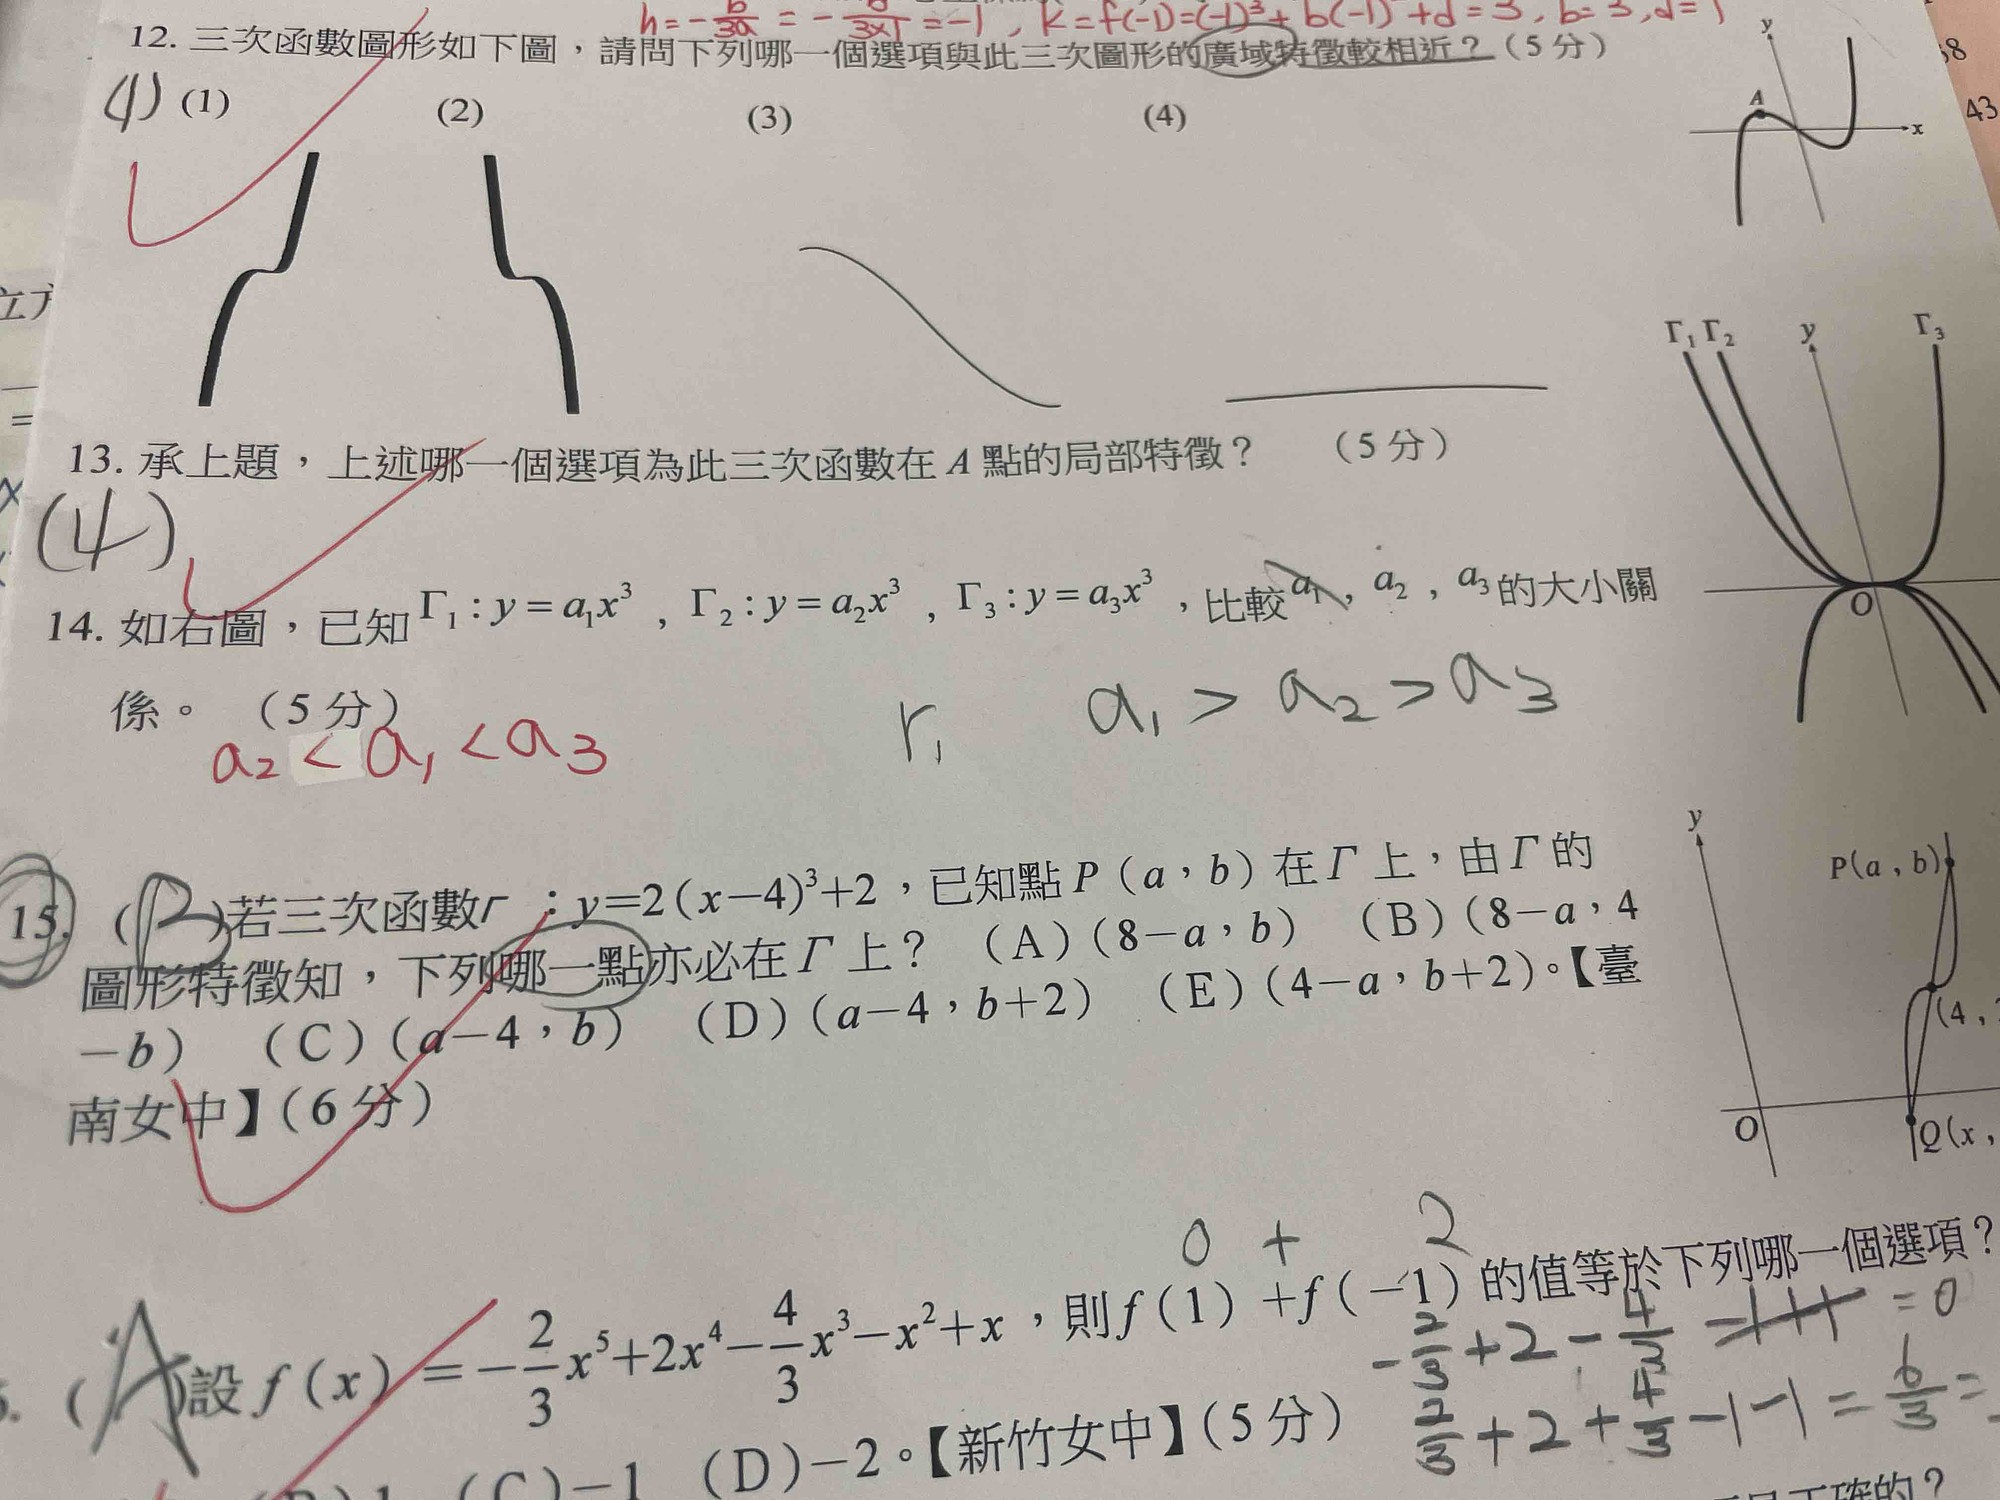 h=-b/3a = -b/3×1 = -1, k=f(-1)=(-1)³+b(-1)+d=3, b=3, d=1
12. 三次函數圖形如下圖，請問下列哪一個選項與此三次圖形的廣域特徵較相近？（5 分）
(1) (2) (3) (4)
y
68
A
43
x
立方
Γ₁ Γ₂ y Γ₃
13. 承上題，上述哪一個選項為此三次函數在 A 點的局部特徵？ （5 分）
(4)
14. 如右圖，已知 Γ₁ : y = a₁x³ , Γ₂ : y = a₂x³ , Γ₃ : y = a₃x³ ，比較 a₁ , a₂ , a₃ 的大小關
O
係。 （5 分）
r₁ a₁ > a₂ > a₃
a₂ < a₁ < a₃
y
15. (B)若三次函數Γ：y=2(x−4)³+2，已知點 P（a，b）在 Γ 上，由 Γ 的
P(a , b)
圖形特徵知，下列哪一點亦必在 Γ 上？ （A）(8−a，b) （B）(8−a，4
−b) （C）(a−4，b) （D）(a−4，b+2) （E）(4−a，b+2)。【臺
(4 ,
南女中】（6 分）
O
Q(x ,
0 + 2
(A)設 f(x) = −2/3x⁵+2x⁴−4/3x³−x²+x，則 f(1)+f(−1) 的值等於下列哪一個選項？
-2/3+2-4/3-1+1 = 0
2/3+2+4/3-1-1 = 6/3 =
(C)−1 (D)−2。【新竹女中】（5 分）